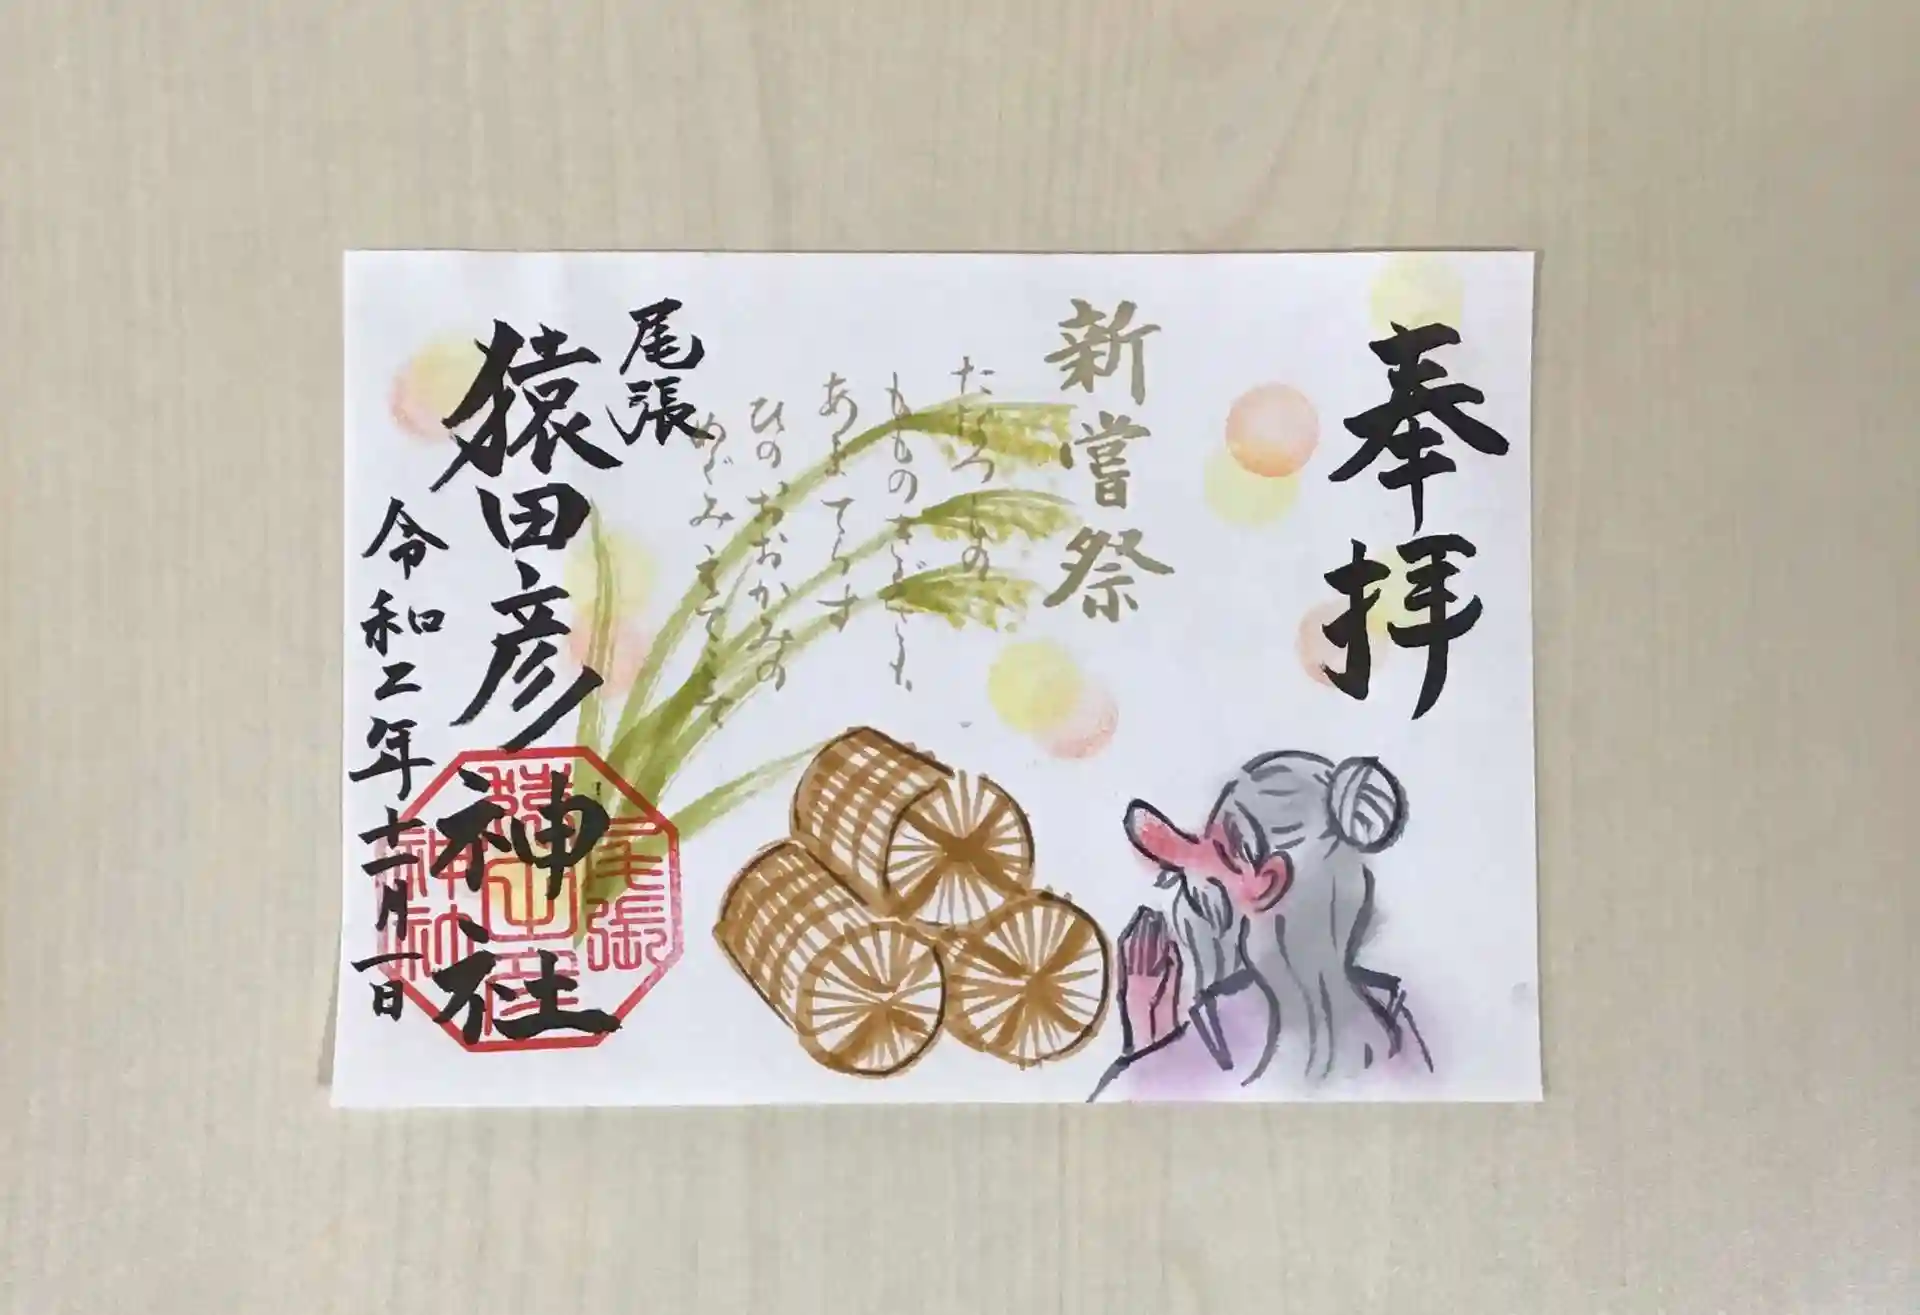 奉拝
新嘗祭
たなつもの
もものきぐさも
あまてらす
ひのおおかみの
めぐみえてこそ
尾張
猿田彦神社
令和二年十一月一日
尾張
猿田彦
神社